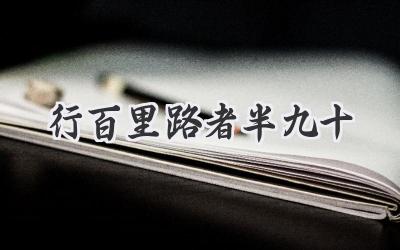 行百里路者半九十